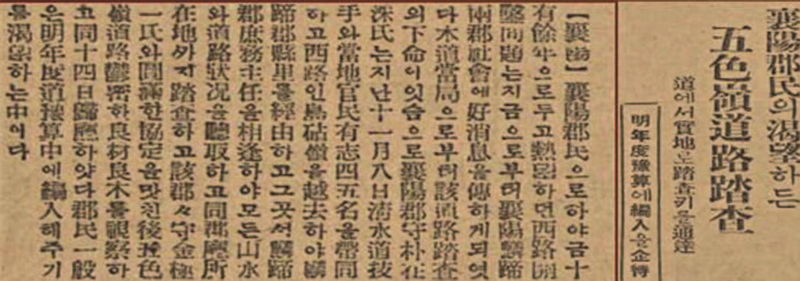 襄陽郡民의渴望하든
五色嶺道路踏査
道에서實地로踏査키를通達
明年度豫算에編入을企待
【襄陽】襄陽郡民으로하야금十
有餘年으로두고熱望하면西路開
鑿問題는지금으로부터襄陽麟蹄
兩郡社會에好消息을傳하게되엿
다本道當局으로부터該道路踏査
의下命이잇슴으로襄陽郡守朴在
洙氏는지난十一月八日淸水道技
手와當地官民有志四五名을帶同
하고西路인烏砧嶺을越去하야麟
蹄郡縣里를經由하고그곳서麟蹄
郡庶務主任을相逢하야모든山水
와道路狀况을聽取하고同郡廳所
在地까지踏査하고該郡々守金極
一氏와圓滿한協定을맛친後五色
嶺道路鬱密한良材良木를視察하
고同十四日歸應하얏다郡民一般
은明年度道豫算中에編入해주기
를渴望하는中이다